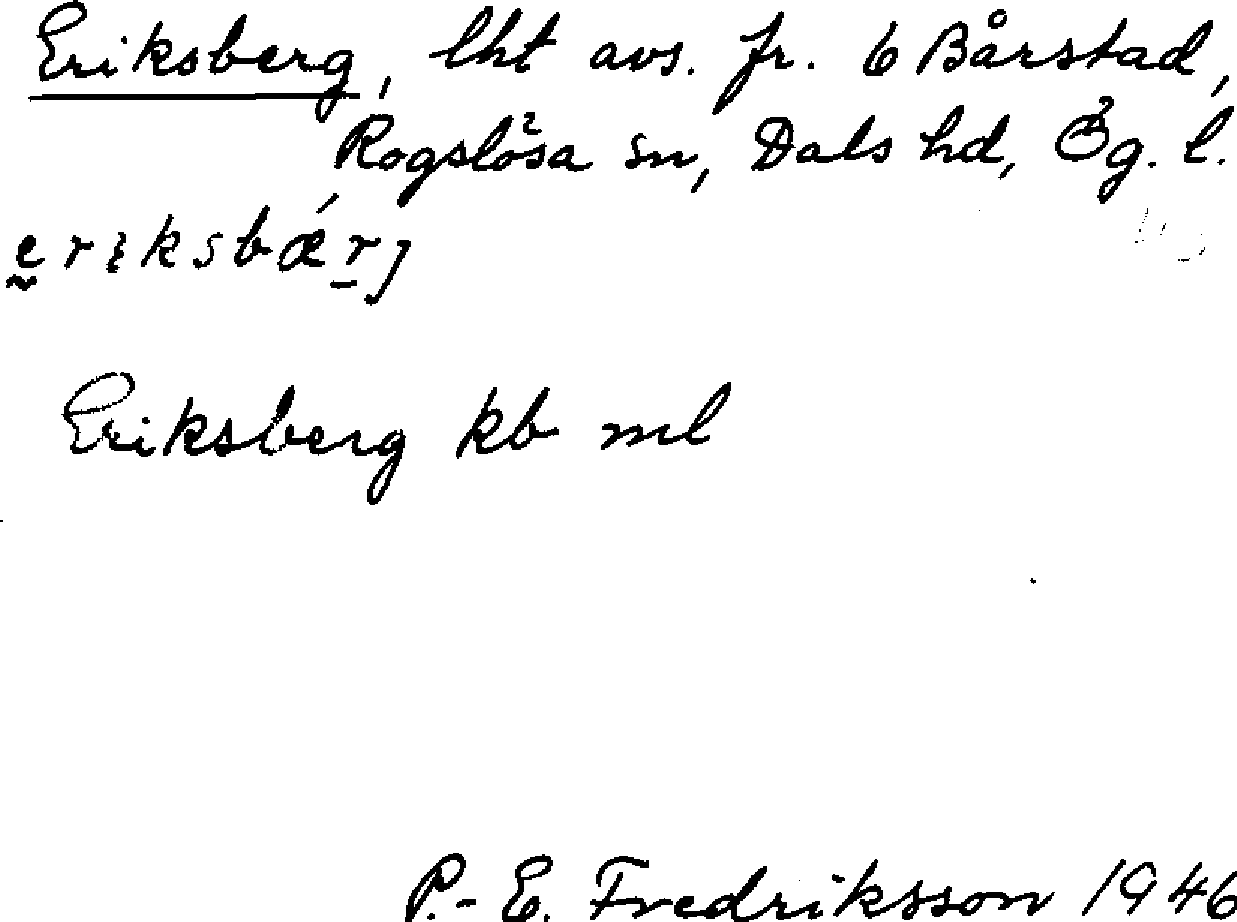 Eriksberg, lht avs. fr. 6 Bårstad,
Rogslösa sn, Dals hd, Ög. l.
erıksbǽrj
Eriksberg kb ml
P.-E. Fredriksson 1946